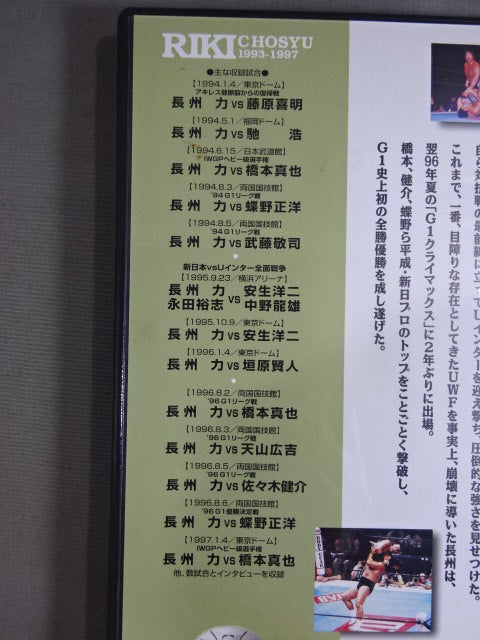 RIKI CHOSYU
1993-1997
●主な収録試合●
【1994.1.4／東京ドーム】
アキレス腱断裂からの復帰戦
長州 力 vs 藤原喜明
【1994.5.1／福岡ドーム】
長州 力 vs 馳 浩
【1994.6.15／日本武道館】
IWGPヘビー級選手権
長州 力 vs 橋本真也
【1994.8.3／両国国技館】
'94 G1リーグ戦
長州 力 vs 蝶野正洋
【1994.8.5／両国国技館】
'94 G1リーグ戦
長州 力 vs 武藤敬司
新日本vsUインター全面戦争
【1995.9.23／横浜アリーナ】
長州 力 vs 安生洋二
永田裕志 中野龍雄
【1995.10.9／東京ドーム】
長州 力 vs 安生洋二
【1996.1.4／東京ドーム】
長州 力 vs 垣原賢人
【1996.8.2／両国国技館】
'96 G1リーグ戦
長州 力 vs 橋本真也
【1996.8.3／両国国技館】
'96 G1リーグ戦
長州 力 vs 天山広吉
【1996.8.5／両国国技館】
'96 G1リーグ戦
長州 力 vs 佐々木健介
【1996.8.6／両国国技館】
'96 G1優勝決定戦
長州 力 vs 蝶野正洋
【1997.1.4／東京ドーム】
IWGPヘビー級選手権
長州 力 vs 橋本真也
他、数試合とインタビューを収録
の最前線に立ってUインターを迎え撃ち、圧倒的な強さを見せつけた。
これまで、一番、目障りな存在としてきたUWFを事実上、崩壊に導いた長州は、
翌96年夏の「G1クライマックス」に2年ぶりに出場。
橋本、健介、蝶野ら平成・新日プロのトップをことごとく撃破し、
G1史上初の全勝優勝を成し遂げた。